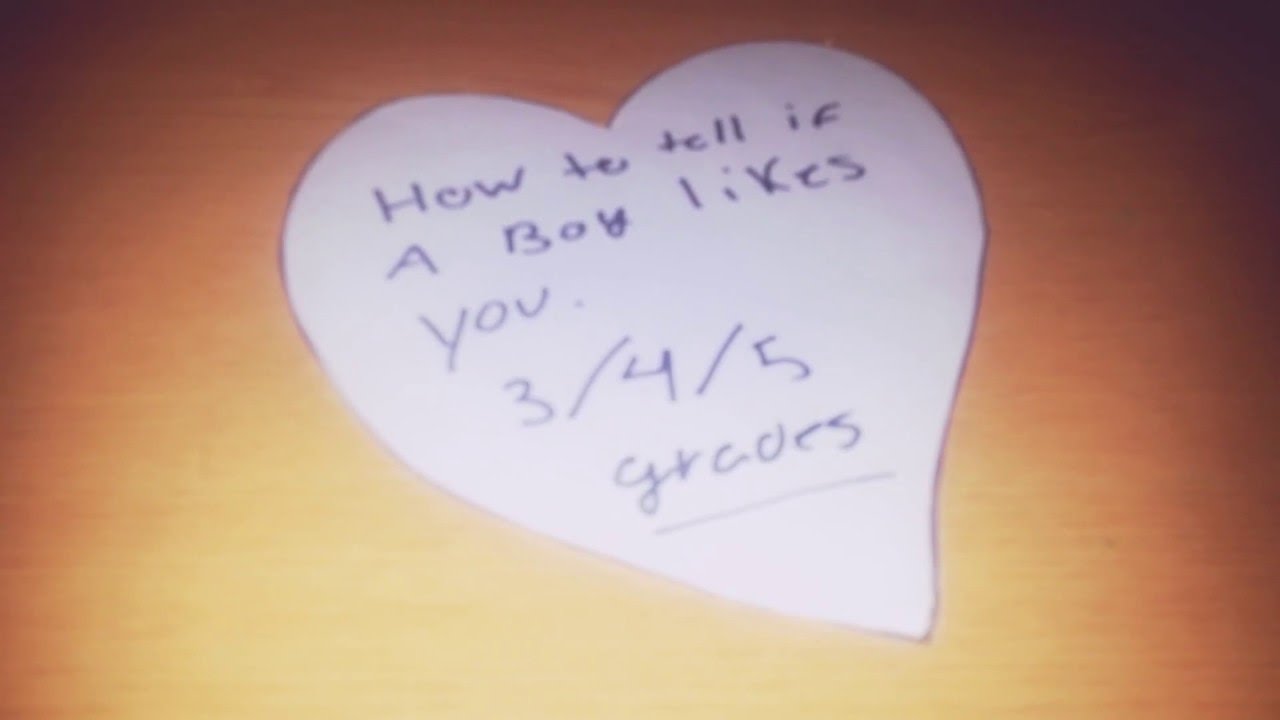 How to tell if
A Boy likes
you.
3/4/5
grades